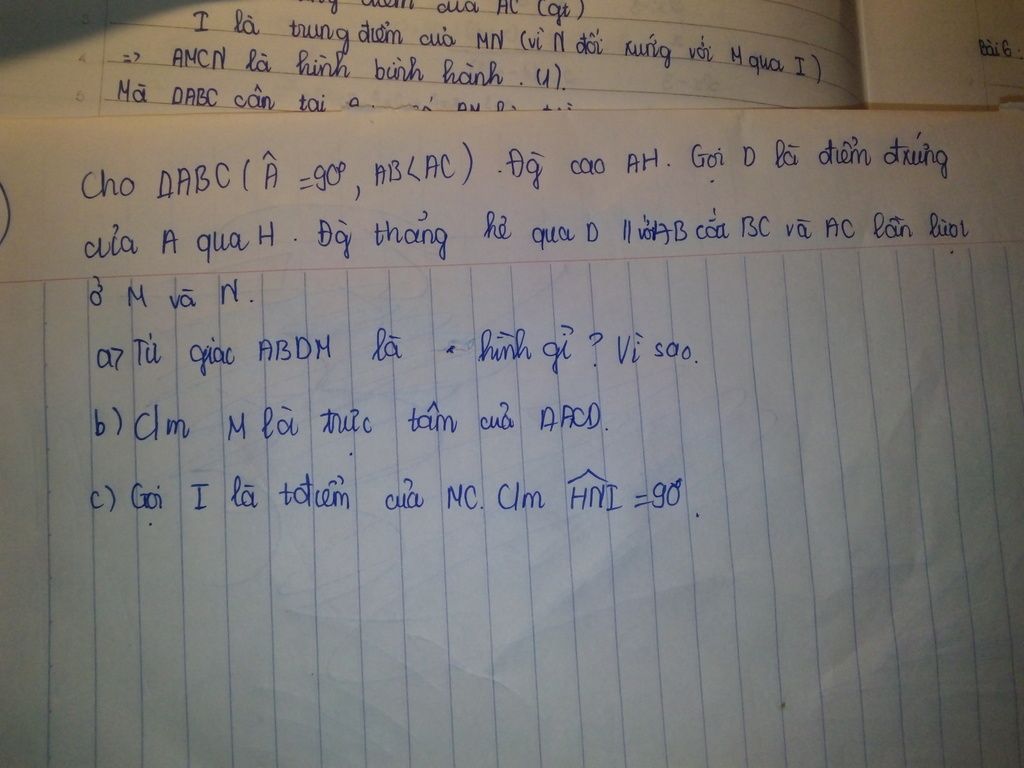 điểm của AC (gt)
I là trung điểm của MN (vì N đối xứng với M qua I)
=> AMCN là hình bình hành. (1).
Bài 6:
Mà ΔABC cân tại
Cho ΔABC ( Â = 90°, AB < AC ). Đg cao AH. Gọi D là điểm đxứng
của A qua H. Đg thẳng kẻ qua D // với AB cắt BC và AC lần lượt
ở M và N.
a) Tứ giác ABDM là hình gì? Vì sao.
b) C/m M là trực tâm của ΔACD.
c) Gọi I là tđiểm của MC. C/m HNI = 90°.